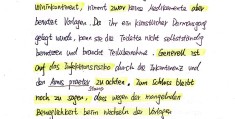 Urininkontinent, nimmt zwar keine Medikamente aber
benutzt Vorlagen. Da ihr ein künstlicher Darmausgang
gelegt wurde, kann sie die Toilette nicht selbstständig
benutzen und braucht Teilübernahme. Generell ist
auf das Infektionsrisiko durch die Inkontinenz und
den Anus praeter zu achten. Zum Schluss bleibt
noch zu sagen, dass wegen der mangelnden
Beweglichkeit beim Wechseln der Vorlagen